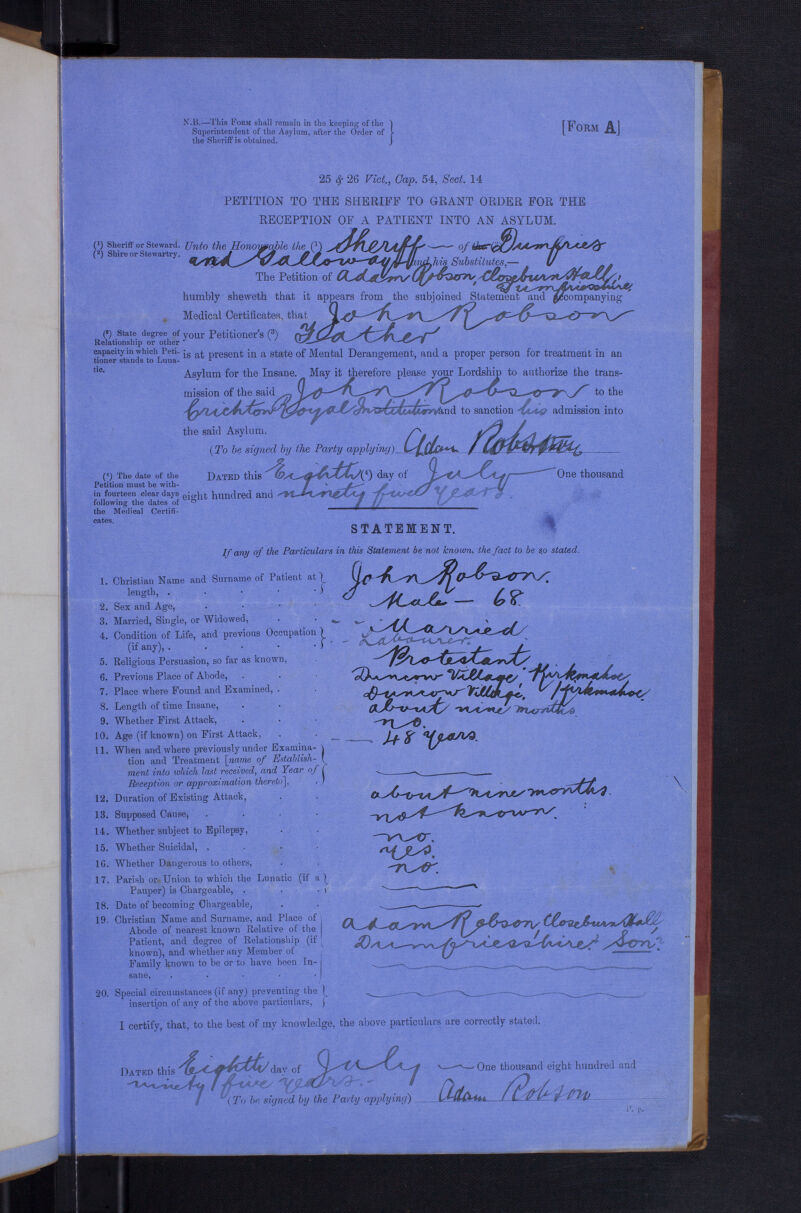 N.B.—This Form shall remain in the keeping of the
Superintendent of the Asylum, after the Order of
the Sheriff is obtained.
[Form A]
25 & 26 Vict., Cap. 54, Sect. 14
PETITION TO THE SHERIFF TO GRANT ORDER FOR THE
RECEPTION OF A PATIENT INTO AN ASYLUM.
(1) Sheriff or Steward.
(2) Shire or Stewartry.
Unto the Honourable the (1) Sheriff — of the (2) Dumfries
and Galloway and his Substitutes,—
The Petition of Adam Robson, Closeburn Hall,
Dumfriesshire,
humbly sheweth that it appears from the subjoined Statement and accompanying
Medical Certificates, that John Robson
(3) State degree of
Relationship or other
capacity in which Peti-
tioner stands to Luna-
tic.
your Petitioner's (3) Father
is at present in a state of Mental Derangement, and a proper person for treatment in an
Asylum for the Insane. May it therefore please your Lordship to authorize the trans-
mission of the said John Robson to the
Crichton Royal Institution and to sanction his admission into
the said Asylum.
(To be signed by the Party applying) Adam Robson
(4) The date of the
Petition must be with-
in fourteen clear days
following the dates of
the Medical Certifi-
cates.
Dated this Eighth (4) day of July One thousand
eight hundred and ninety five years.
STATEMENT.
If any of the Particulars in this Statement be not known, the fact to be so stated.
1. Christian Name and Surname of Patient at
length, . John Robson.
2. Sex and Age, Male — 68
3. Married, Single, or Widowed, Married
4. Condition of Life, and previous Occupation
(if any), . Labourer.
5. Religious Persuasion, so far as known, Protestant.
6. Previous Place of Abode, Duncow Village, Kirkmahoe
7. Place where Found and Examined, . Duncow Village, Kirkmahoe
8. Length of time Insane, about nine months
9. Whether First Attack, no.
10. Age (if known) on First Attack, 48 Years.
11. When and where previously under Examina-
tion and Treatment [name of Establish-
ment into which last received, and Year of
Reception or approximation thereto],
12. Duration of Existing Attack, about nine months.
13. Supposed Cause, not known.
14. Whether subject to Epilepsy, no.
15. Whether Suicidal, . yes.
16. Whether Dangerous to others, no.
17. Parish or Union to which the Lunatic (if a
Pauper) is Chargeable, .
18. Date of becoming Chargeable,
19. Christian Name and Surname, and Place of
Abode of nearest known Relative of the
Patient, and degree of Relationship (if
known), and whether any Member of
Family known to be or to have been In-
sane,
Adam Robson, Closeburn Hall,
Dumfriesshire. Son.
20. Special circumstances (if any) preventing the
insertion of any of the above particulars,
I certify, that, to the best of my knowledge, the above particulars are correctly stated.
Dated this Eighth day of July One thousand eight hundred and
ninety five years.
(To be signed by the Party applying) Adam Robson